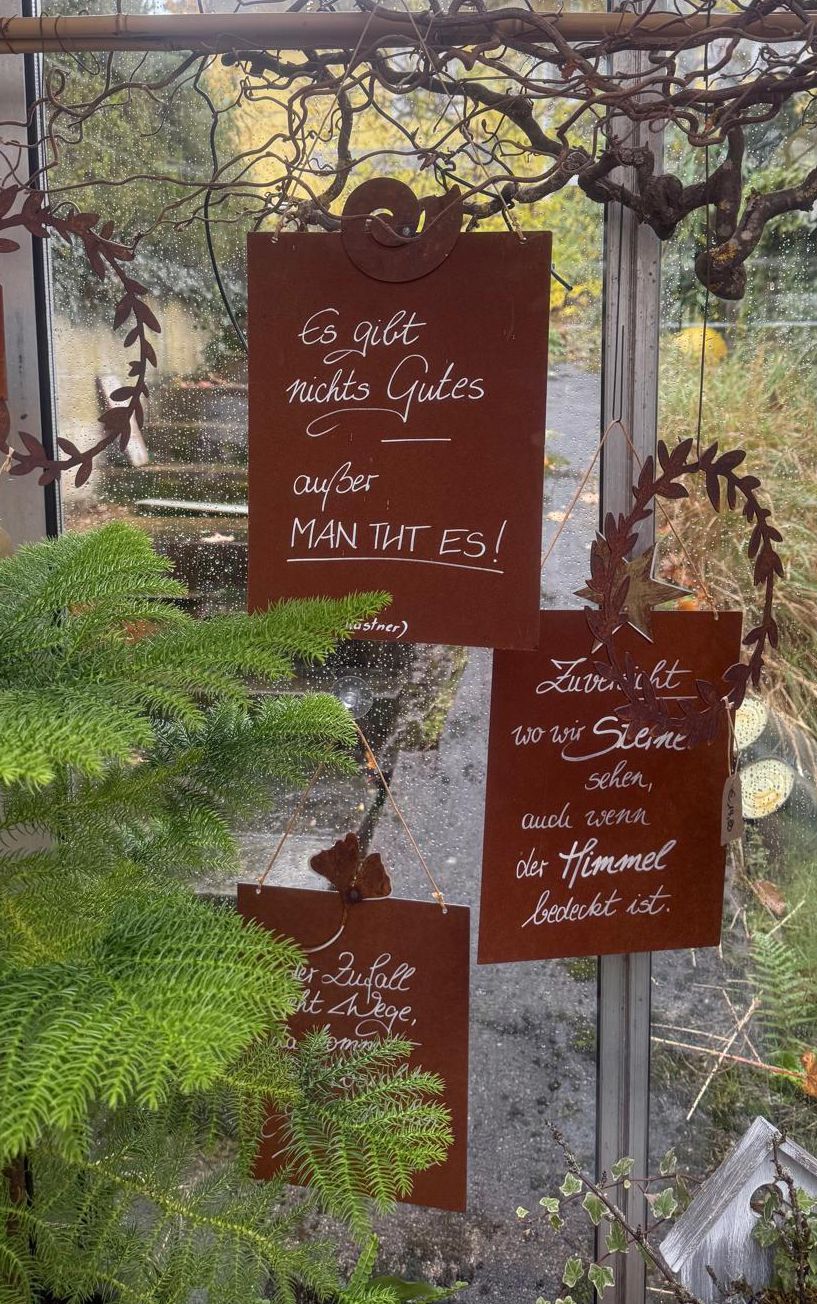 Es gibt
nichts Gutes
außer
MAN THT ES!
Zuversicht
wo wir Sterne
sehen,
auch wenn
der Himmel
bedeckt ist.
Zufall
Wege,